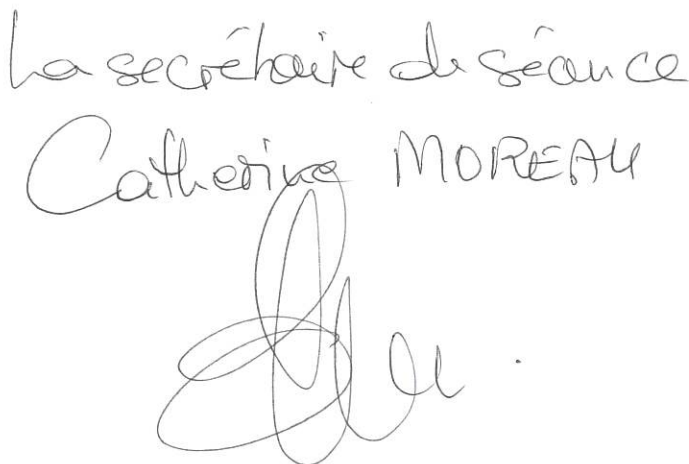 La secrétaire de séance
Catherine MOREAU